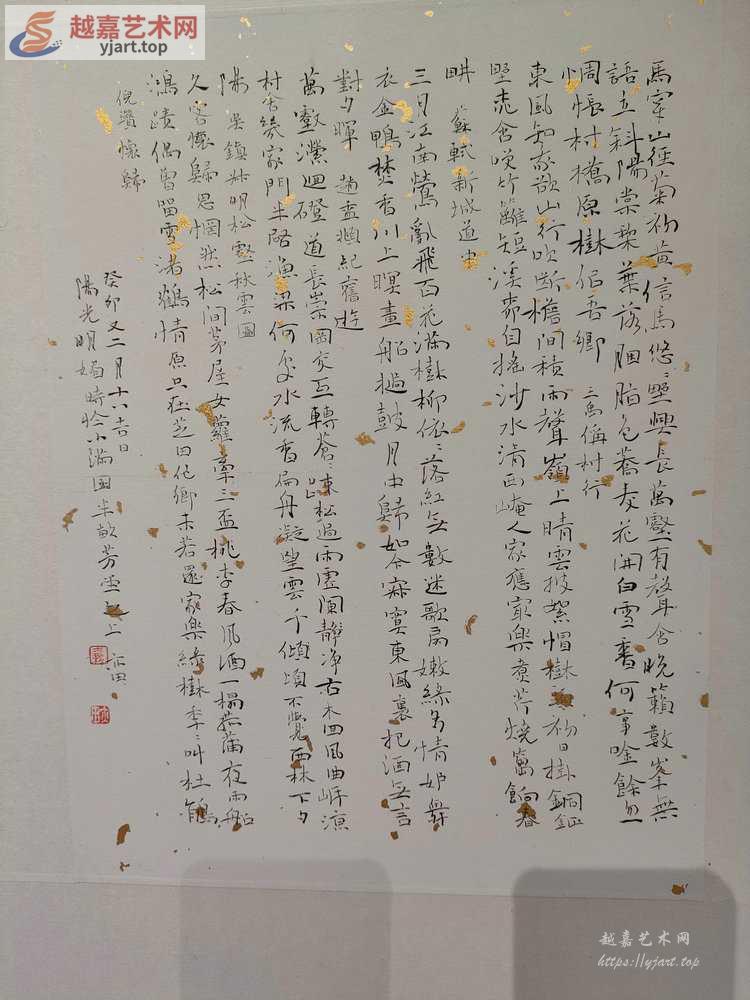 越嘉艺术网
yjart.top
馬穿山徑菊初黃信馬悠〻野興長萬壑有聲含晚籟數峯無
語立斜陽棠棃葉落胭脂色蕎麥花開白雪香何事唫餘忽
惆悵村橋原樹佀吾鄉 王禹偁村行
東風知我欲山行吹斷檐間積雨聲嶺上晴雲披絮帽樹頭初日掛銅鉦
野桃含笑竹籬短溪柳自搖沙水清西崦人家應最樂煮芹燒筍餉春
畊 蘇軾新城道中
三月江南鶯亂飛百花滿樹柳依〻落紅無數迷歌扇嫩綠多情妒舞
衣金鴨焚香川上暝畫船撾鼓月中歸如今寂寞東風裏把酒無言
對夕暉 趙孟頫紀舊遊
萬壑瀠迴磴道長崇岡交互轉蒼〻疎松過雨虛闌靜淨古木回風曲岸涼
村舍幾家門半啟漁梁何處水流香扁舟凝望雲千傾頃不覺西林下夕
陽 吳鎮 明松壑秋雲圖
久客懷歸思惘然松間茅屋女蘿牽三盃桃李春風酒一榻菰蒲夜雨船
鴻蹟偶曾留雪渚鶴情原只在芝田他鄉未若還家樂綠樹年〻叫杜鵑
倪瓚懷歸
癸卯又二月十六吉日
陽光明媚時於小滿園半畝芳 之上
越嘉艺术网
https://yjart.top